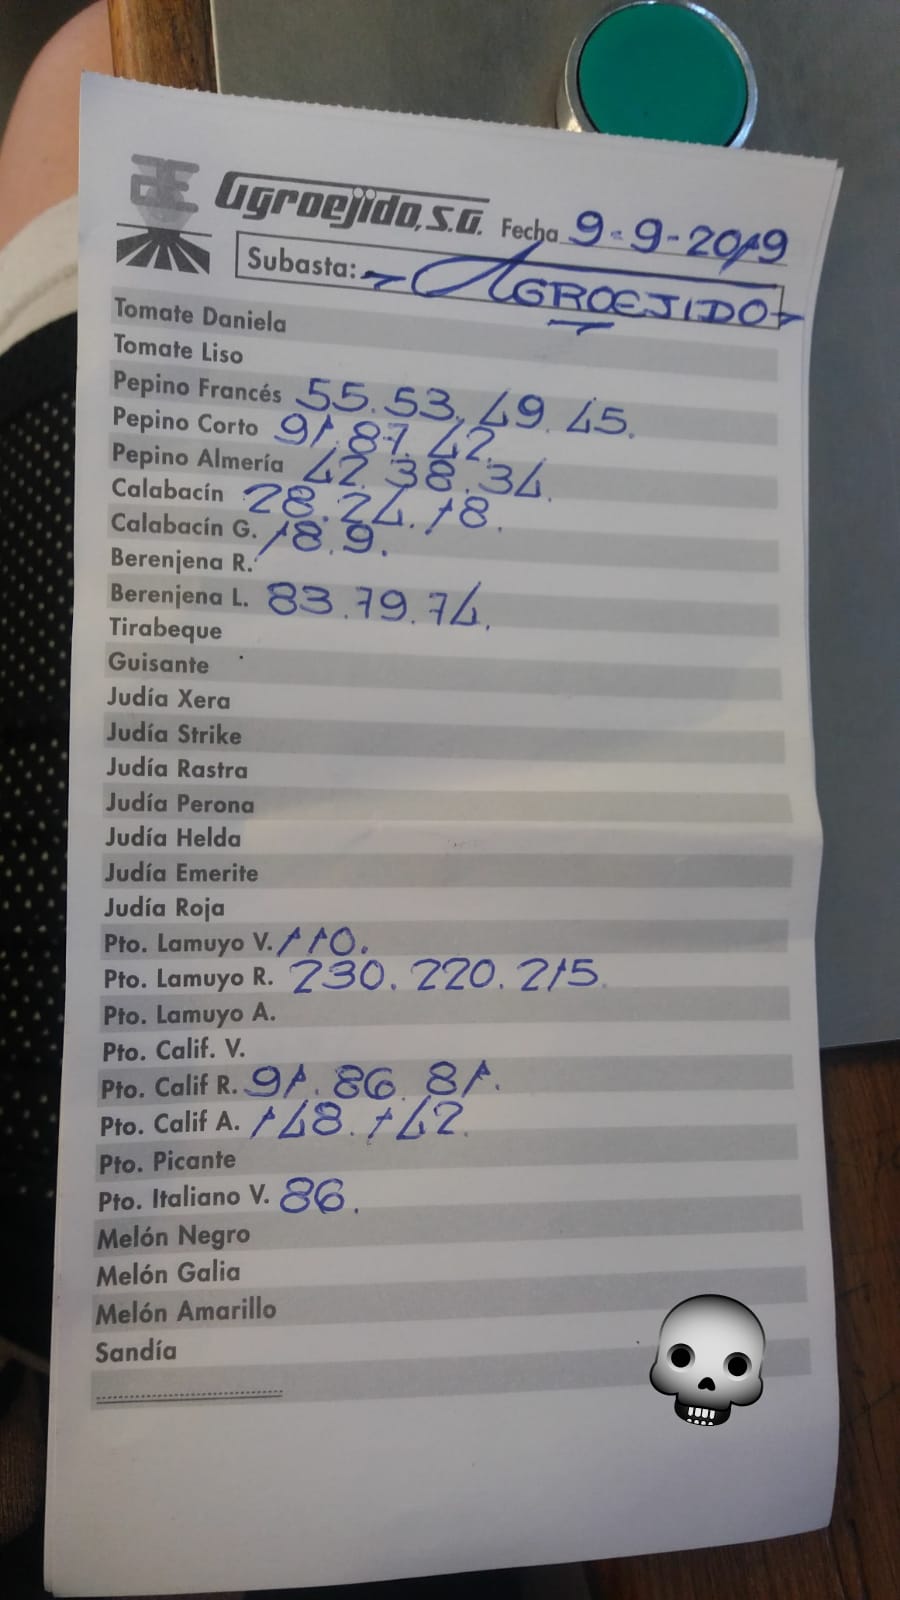 Agroejido, S.A. Fecha 9-9-2019
Subasta: AGROEJIDO
Tomate Daniela
Tomate Liso
Pepino Francés 55. 53. 49. 45.
Pepino Corto 91. 87. 42.
Pepino Almería 42. 38. 34.
Calabacín 28. 24. 18.
Calabacín G. 18. 9.
Berenjena R.
Berenjena L. 83. 79. 74.
Tirabeque
Guisante
Judía Xera
Judía Strike
Judía Rastra
Judía Perona
Judía Helda
Judía Emerite
Judía Roja
Pto. Lamuyo V. 110.
Pto. Lamuyo R. 230. 220. 215.
Pto. Lamuyo A.
Pto. Calif. V.
Pto. Calif R. 91. 86. 81.
Pto. Calif A. 148. 142.
Pto. Picante
Pto. Italiano V. 86.
Melón Negro
Melón Galia
Melón Amarillo
Sandía